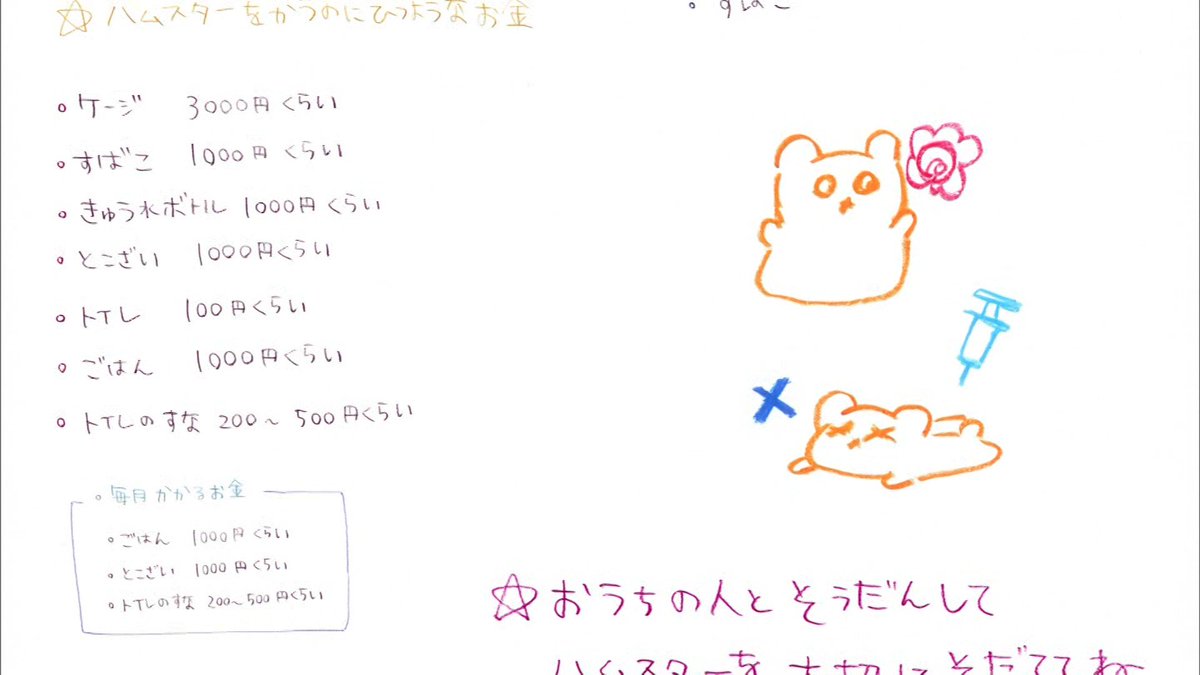 ☆ハムスターをかうのにひつようなお金
・ケージ 3000円くらい
・すばこ 1000円くらい
・きゅう水ボトル 1000円くらい
・とこざい 1000円くらい
・トイレ 100円くらい
・ごはん 1000円くらい
・トイレのすな 200~500円くらい
・毎月かかるお金
・ごはん 1000円くらい
・とこざい 1000円くらい
・トイレのすな 200~500円くらい
・すばこ
☆おうちの人とそうだんして
ハムスターを大切にそだててね